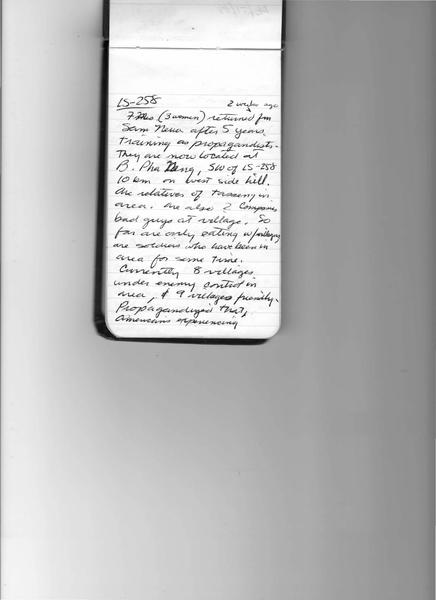 LS-258 2 weeks ago
7 Meo (3 women) returned fm
Sam Neua after 5 years
training as propagandists.
They are now located at
B. Pha Deng, SW of LS-258
10 km on west side hill.
Are relatives of Tasseng in
area. Are also 2 Companies
bad guys at village. So
far are only eating w/villagers
are soldiers who have been in
area for some time.
Currently 8 villages
under enemy control in
area, & 9 villages friendly.
Propagandized that,
Americans experiencing